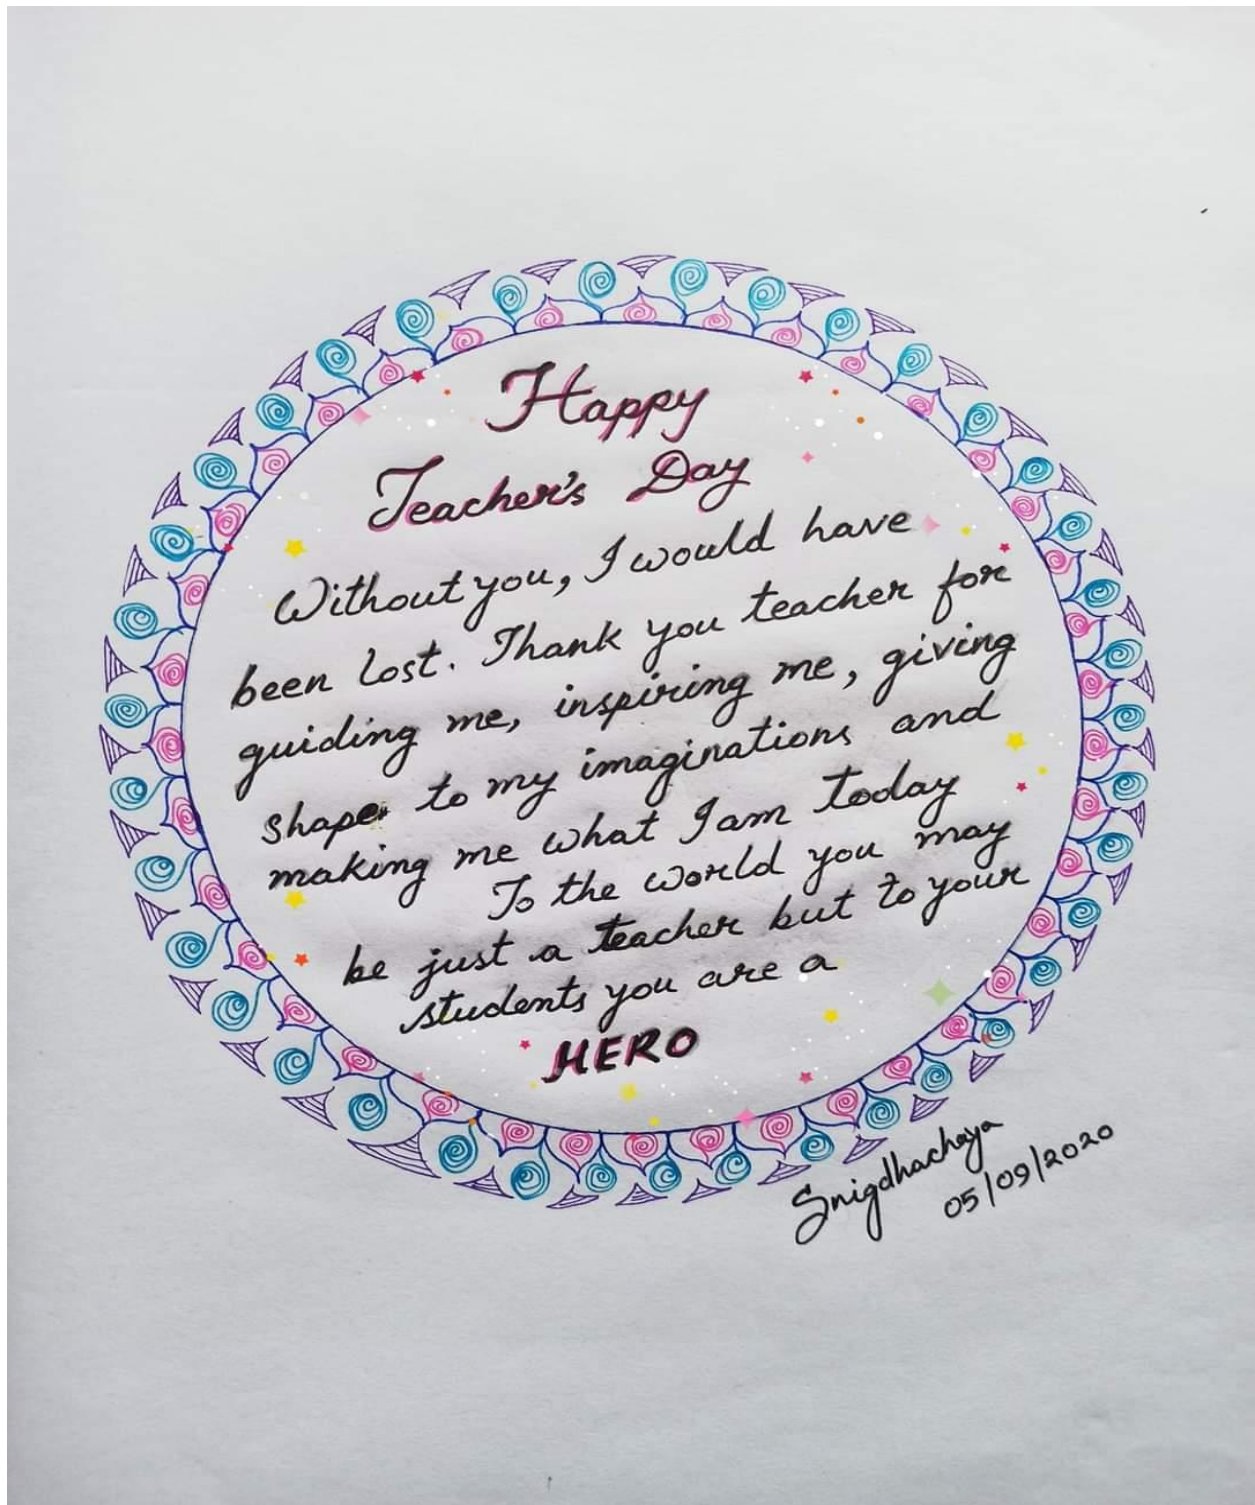 Happy
Teacher's Day
Without you, I would have
been lost. Thank you teacher for
guiding me, inspiring me, giving
shape to my imaginations and
making me what I am today
To the world you may
be just a teacher but to your
students you are a
HERO
Snigdhachaya
05/09/2020